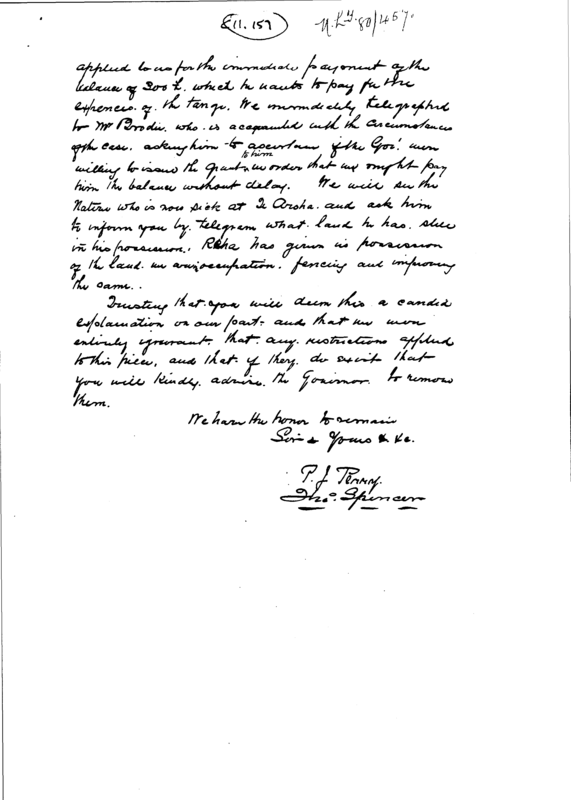 811.157 N.L.P. 80/457.
applied to us for the immediate payment of the
balance of 300 £. which he wants to pay for the
expences. of the tangi. We immediately telegraphed
to Mr Brodie. who is acquainted with the circumstances
of the case. asking him to ascertain if the Gov.t were
willing to issue the Grant to him in order that we might pay
him the balance without delay. We will see the
Native who is now sick at Te Aroha. and ask him
to inform you by telegram what land he has. still
in his possession. Reha has given us possession
of the land. in occupation. fencing and improving
the same..
Trusting that you will deem this a candid
explanation on our part. and that we were
entirely ignorant that any restrictions applied
to this piece, and that if they do exist that
you will kindly. advise the Governor to remove
them.
We have the honor to remain
Sir Yours &c.
T. J Perry.
Thos. Spencer